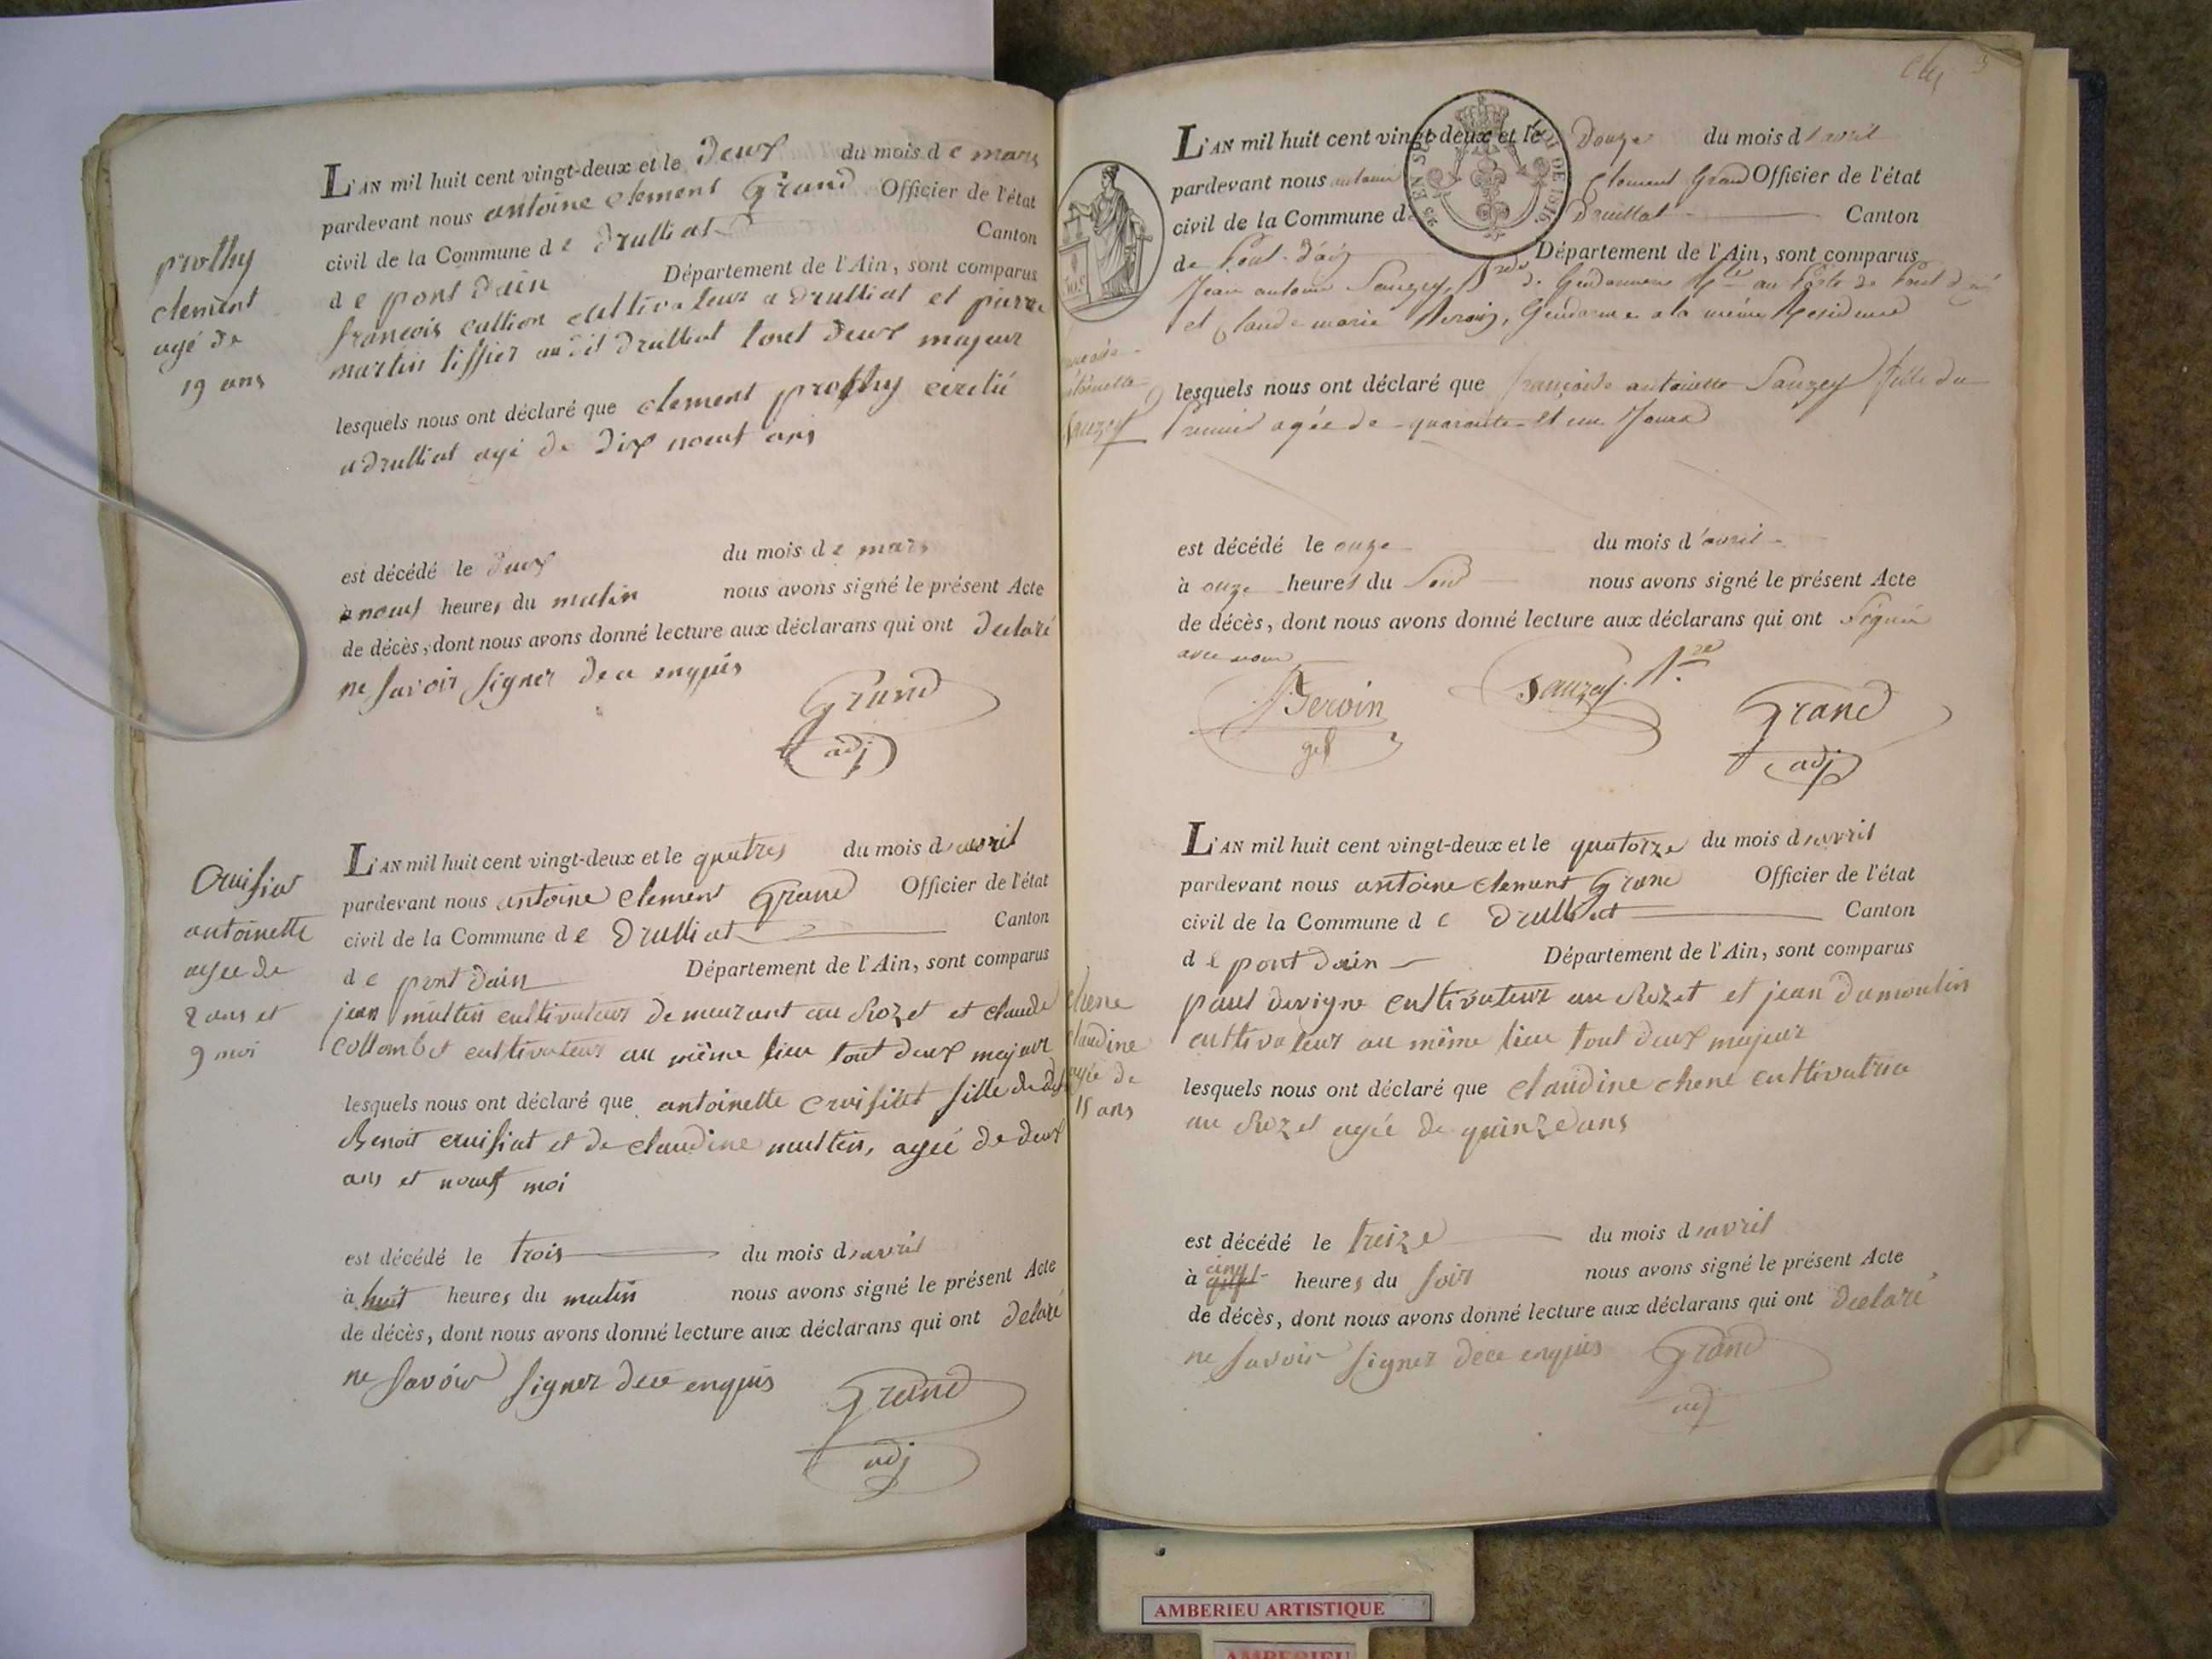 prothy
clement
agé de
19 ans
L'AN mil huit cent vingt-deux et le deux du mois de mars
pardevant nous antoine clement Grand Officier de l'état
civil de la Commune de Drulliat Canton
de pont dain Département de l'Ain, sont comparus
francois cultivateur a drulliat et pierre
martin tissier au dit drulliat tout deux majeur
lesquels nous ont déclaré que clement prothy
a drulliat agé de dix noeuf ans
est décédé le deux du mois de mars
à noeuf heures du matin nous avons signé le présent Acte
de décès, dont nous avons donné lecture aux déclarans qui ont declaré
ne savoir signer de ce enquis
Grand
adj
Cruisiat
antoinette
agee de
2 ans et
9 moi
L'AN mil huit cent vingt-deux et le quatres du mois d'avril
pardevant nous antoine clement Grand Officier de l'état
civil de la Commune de Drulliat Canton
de pont dain Département de l'Ain, sont comparus
jean multin cultivateur demeurant au Rozet et claude
collombet cultivateur au même lieu tout deux majeur
lesquels nous ont déclaré que antoinette fille de
Benoit cruisiat et de claudine multin, agée de deux
ans et noeuf moi
est décédé le trois du mois d'avril
à huit heures du matin nous avons signé le présent Acte
de décès, dont nous avons donné lecture aux déclarans qui ont delaré
ne savoir signer de ce enquis
Grand
adj
3
25 EN SUS LOI DE 1816
L'AN mil huit cent vingt-deux et le Douze du mois d'avril
pardevant nous antoine Clement Grand Officier de l'état
civil de la Commune de Druillat Canton
de Pont-d'ain Département de l'Ain, sont comparus
Jean antoine Sauzey, de Gendarmerie au Poste de Pont d'ain
et Claude marie Beroin, Gendarme a la même Residence
Sauzey
lesquels nous ont déclaré que françoise antoinette Sauzey fille du
Premier agée de quarante et un Jours
est décédé le onze du mois d'avril
à onze heures du Soir nous avons signé le présent Acte
de décès, dont nous avons donné lecture aux déclarans qui ont Signé
avec nous
Beroin
Sauzey
Grand
adj
chene
claudine
agée de
15 ans
L'AN mil huit cent vingt-deux et le quatorze du mois d'avril
pardevant nous antoine clement Grand Officier de l'état
civil de la Commune de Drulliat Canton
de pont dain Département de l'Ain, sont comparus
paul devigne cultivateur au Rozet et jean dumoulin
cultivateur au même lieu tout deux majeur
lesquels nous ont déclaré que claudine chene cultivatrice
au Rozet agée de quinze ans
est décédé le treize du mois d'avril
à cinq heures du soir nous avons signé le présent Acte
de décès, dont nous avons donné lecture aux déclarans qui ont declaré
ne savoir signer de ce enquis
Grand
adj
AMBERIEU ARTISTIQUE
AMBERIEU